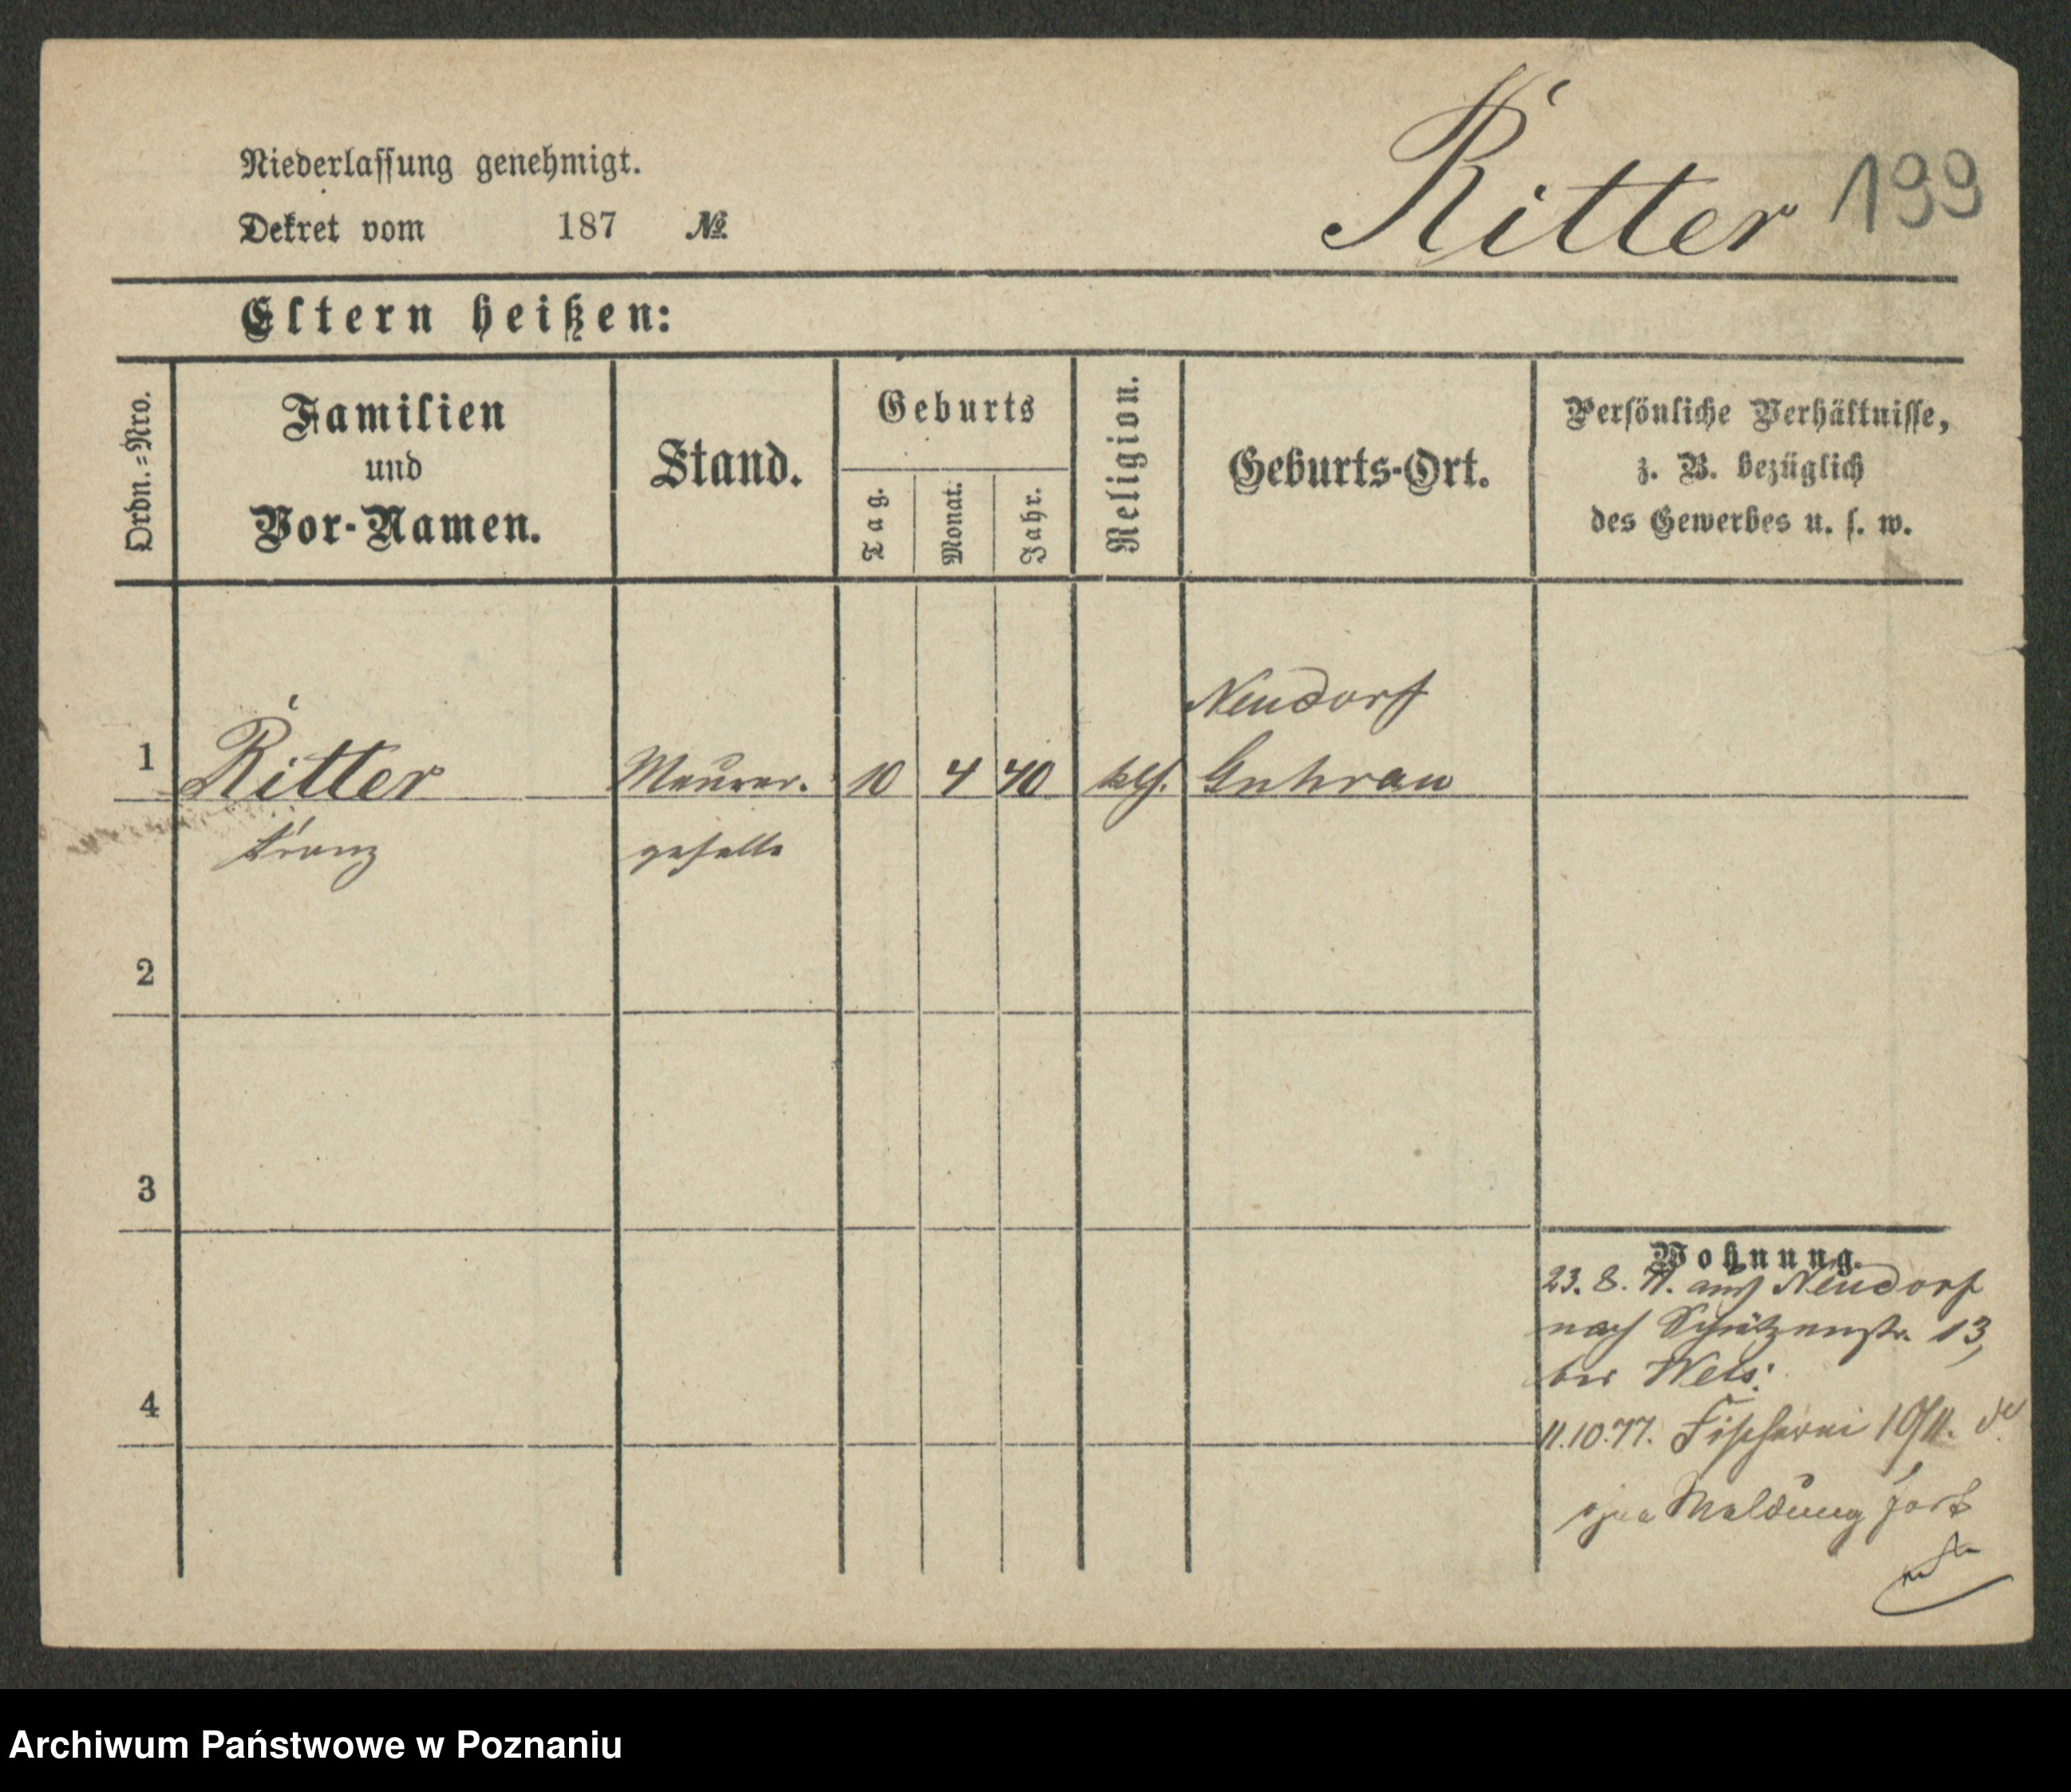 Niederlassung genehmigt.
Dekret vom 187 №
Ritter 199
Eltern heißen:
Ordn.=Nro.
Familien
und
Vor-Namen.
Stand.
Geburts
Tag.
Monat.
Jahr.
Religion.
Geburts-Ort.
Persönliche Verhältnisse,
z. B. bezüglich
des Gewerbes u. s. w.
Neudorf
1 Ritter Maurer. 10 4 40 kth. Guhrau
Franz geselle
2
3
4
Wohnung.
23. 8. 77. aus Neudorf
nach Schützenstr. 13,
bei
11.10.77. Fischerei 10/11.
ohne Meldung fort
Archiwum Państwowe w Poznaniu